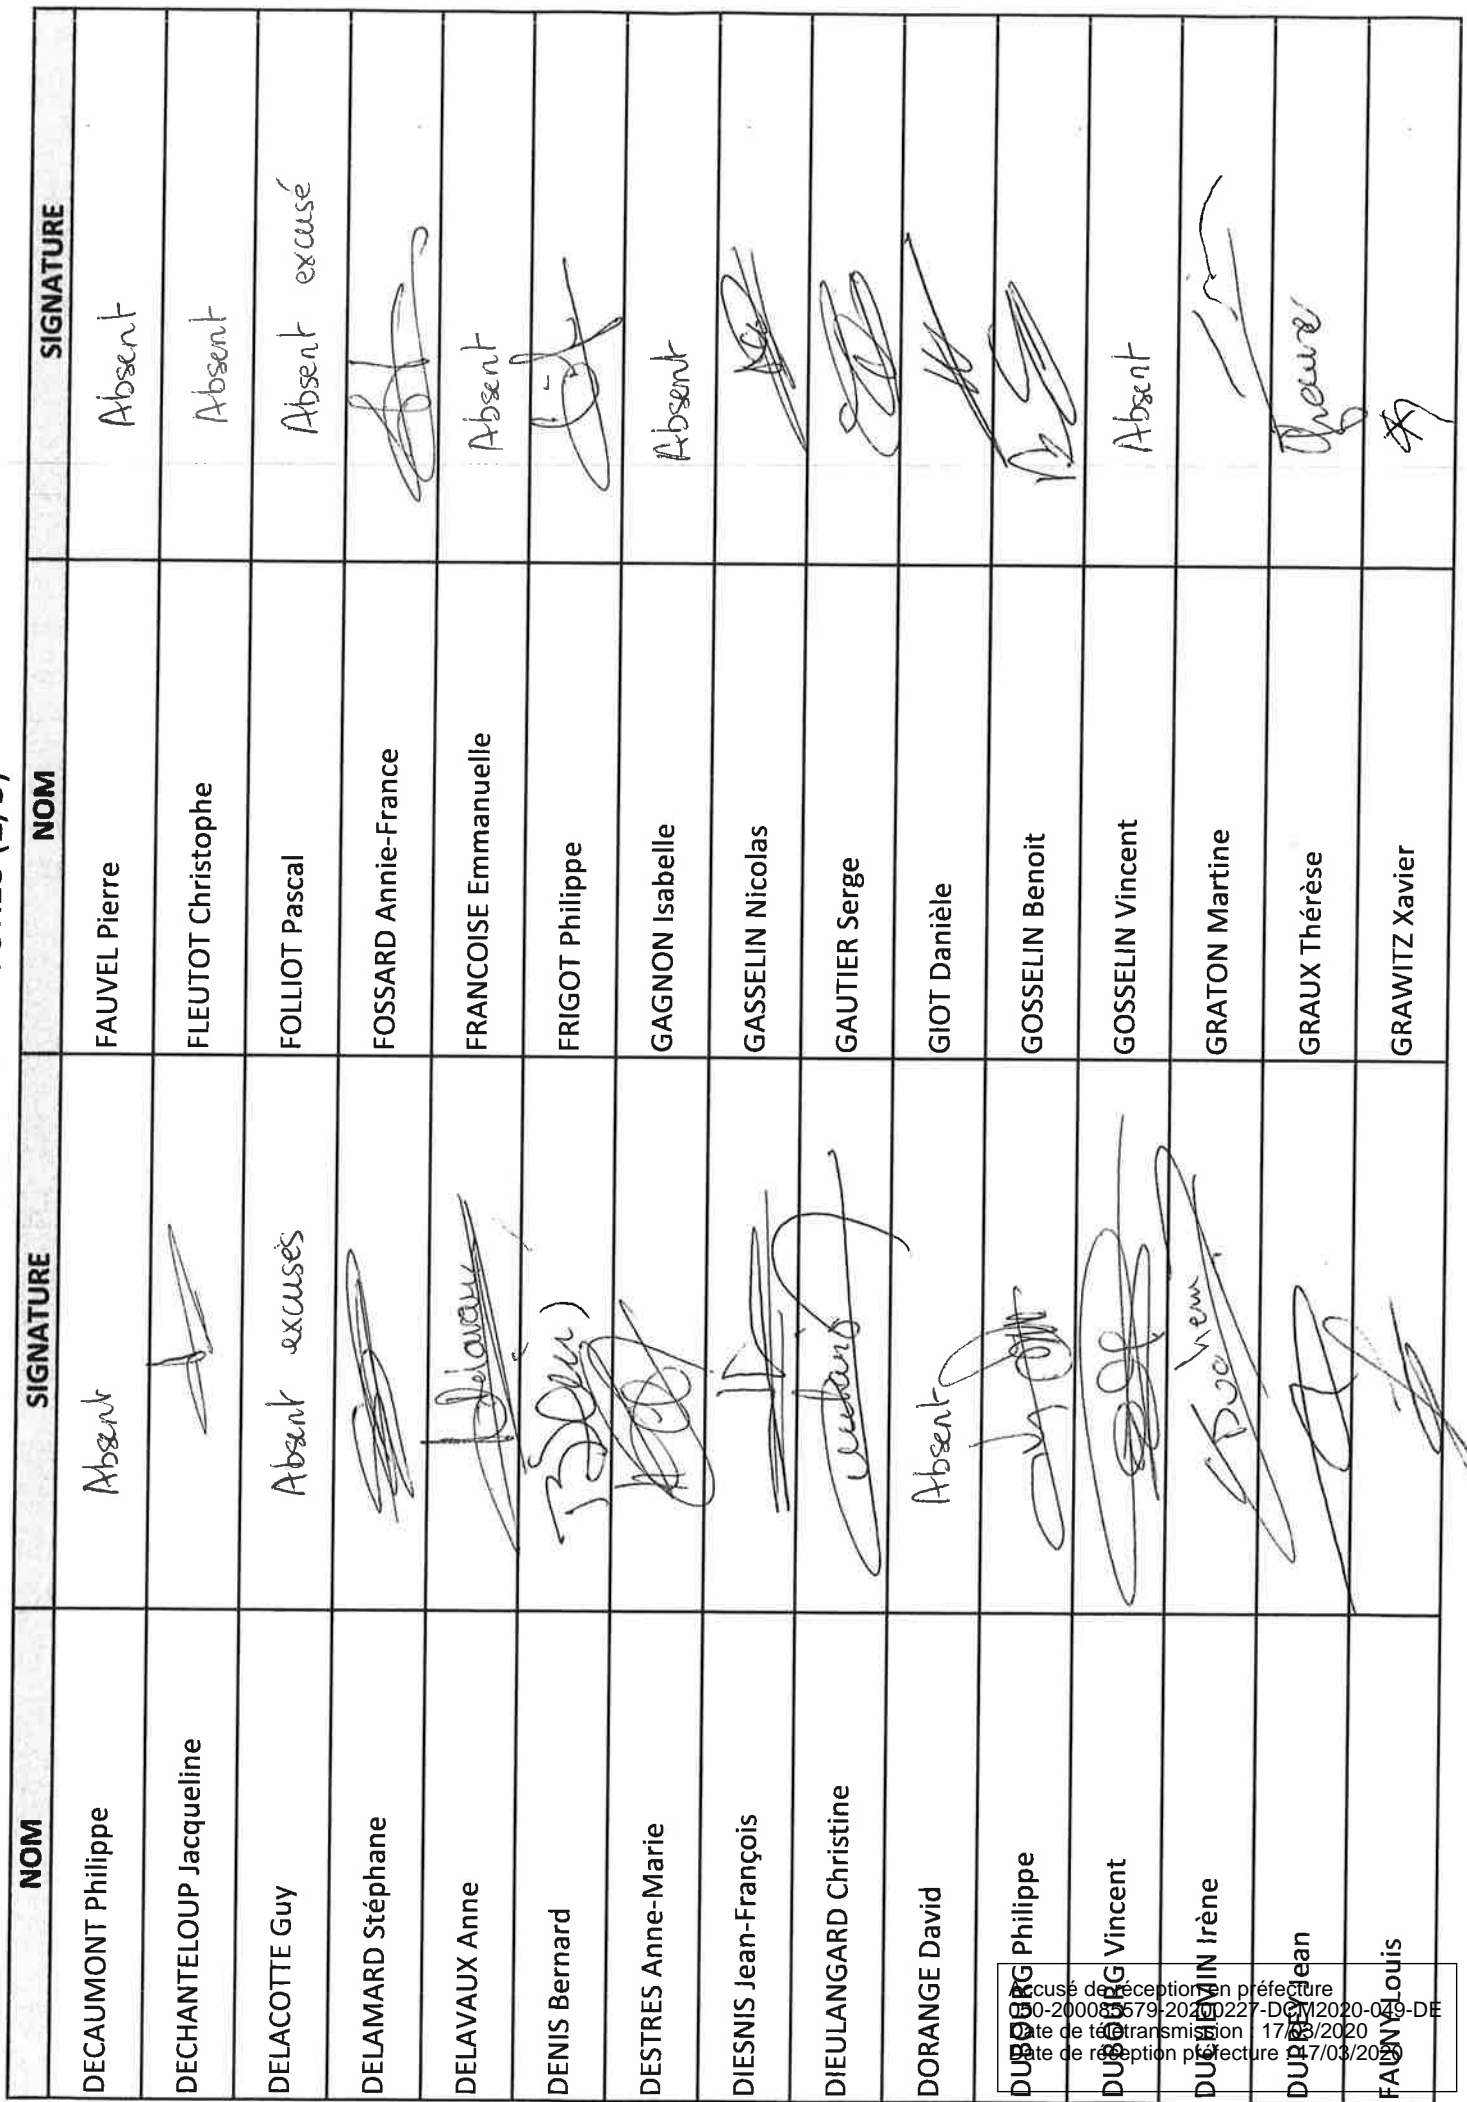 NOM SIGNATURE NOM SIGNATURE
DECAUMONT Philippe Absent FAUVEL Pierre Absent
DECHANTELOUP Jacqueline FLEUTOT Christophe Absent
DELACOTTE Guy Absent excusés FOLLIOT Pascal Absent excusé
DELAMARD Stéphane FOSSARD Annie-France
DELAVAUX Anne Delavaux FRANCOISE Emmanuelle Absent
DENIS Bernard FRIGOT Philippe
DESTRES Anne-Marie GAGNON Isabelle Absent
DIESNIS Jean-François GASSELIN Nicolas
DIEULANGARD Christine GAUTIER Serge
DORANGE David Absent GIOT Danièle
DUBOURG Philippe GOSSELIN Benoit
DUBOURG Vincent GOSSELIN Vincent Absent
DUCHEMIN Irène GRATON Martine
DUPREY Jean GRAUX Thérèse
FAUNY Louis GRAWITZ Xavier
Accusé de réception en préfecture
050-200085579-20200227-DCM2020-049-DE
Date de télétransmission : 17/03/2020
Date de réception préfecture : 17/03/2020